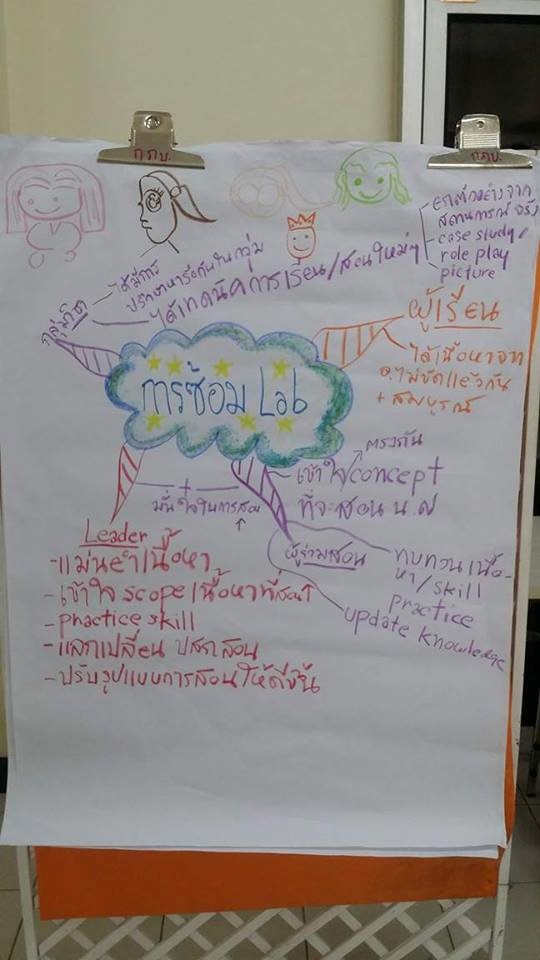 กภบ.
กภบ.
ยกตัวอย่างจาก
สถานการณ์จริง
case study
role play
picture
กลุ่มวิชา
ได้มีการ
ปรึกษาหารือกันในกลุ่ม
ได้เทคนิคการเรียน/สอนใหม่ๆ
ผู้เรียน
ได้เนื้อหาจาก
อ.ไม่ขัดแย้งกัน
+ สมบูรณ์
การซ้อม Lab
ตรงกัน
เข้าใจ concept
ที่จะสอน น.ศ
+
มั่นใจในการสอน↑
Leader
- แม่นยำเนื้อหา
- เข้าใจ scope เนื้อหาที่สอน
- practice skill
- แลกเปลี่ยน ปสก.สอน
- ปรับรูปแบบการสอนให้ดีขึ้น
ผู้ร่วมสอน
ทบทวนเนื้อ-
หา/skill
practice
update knowledge